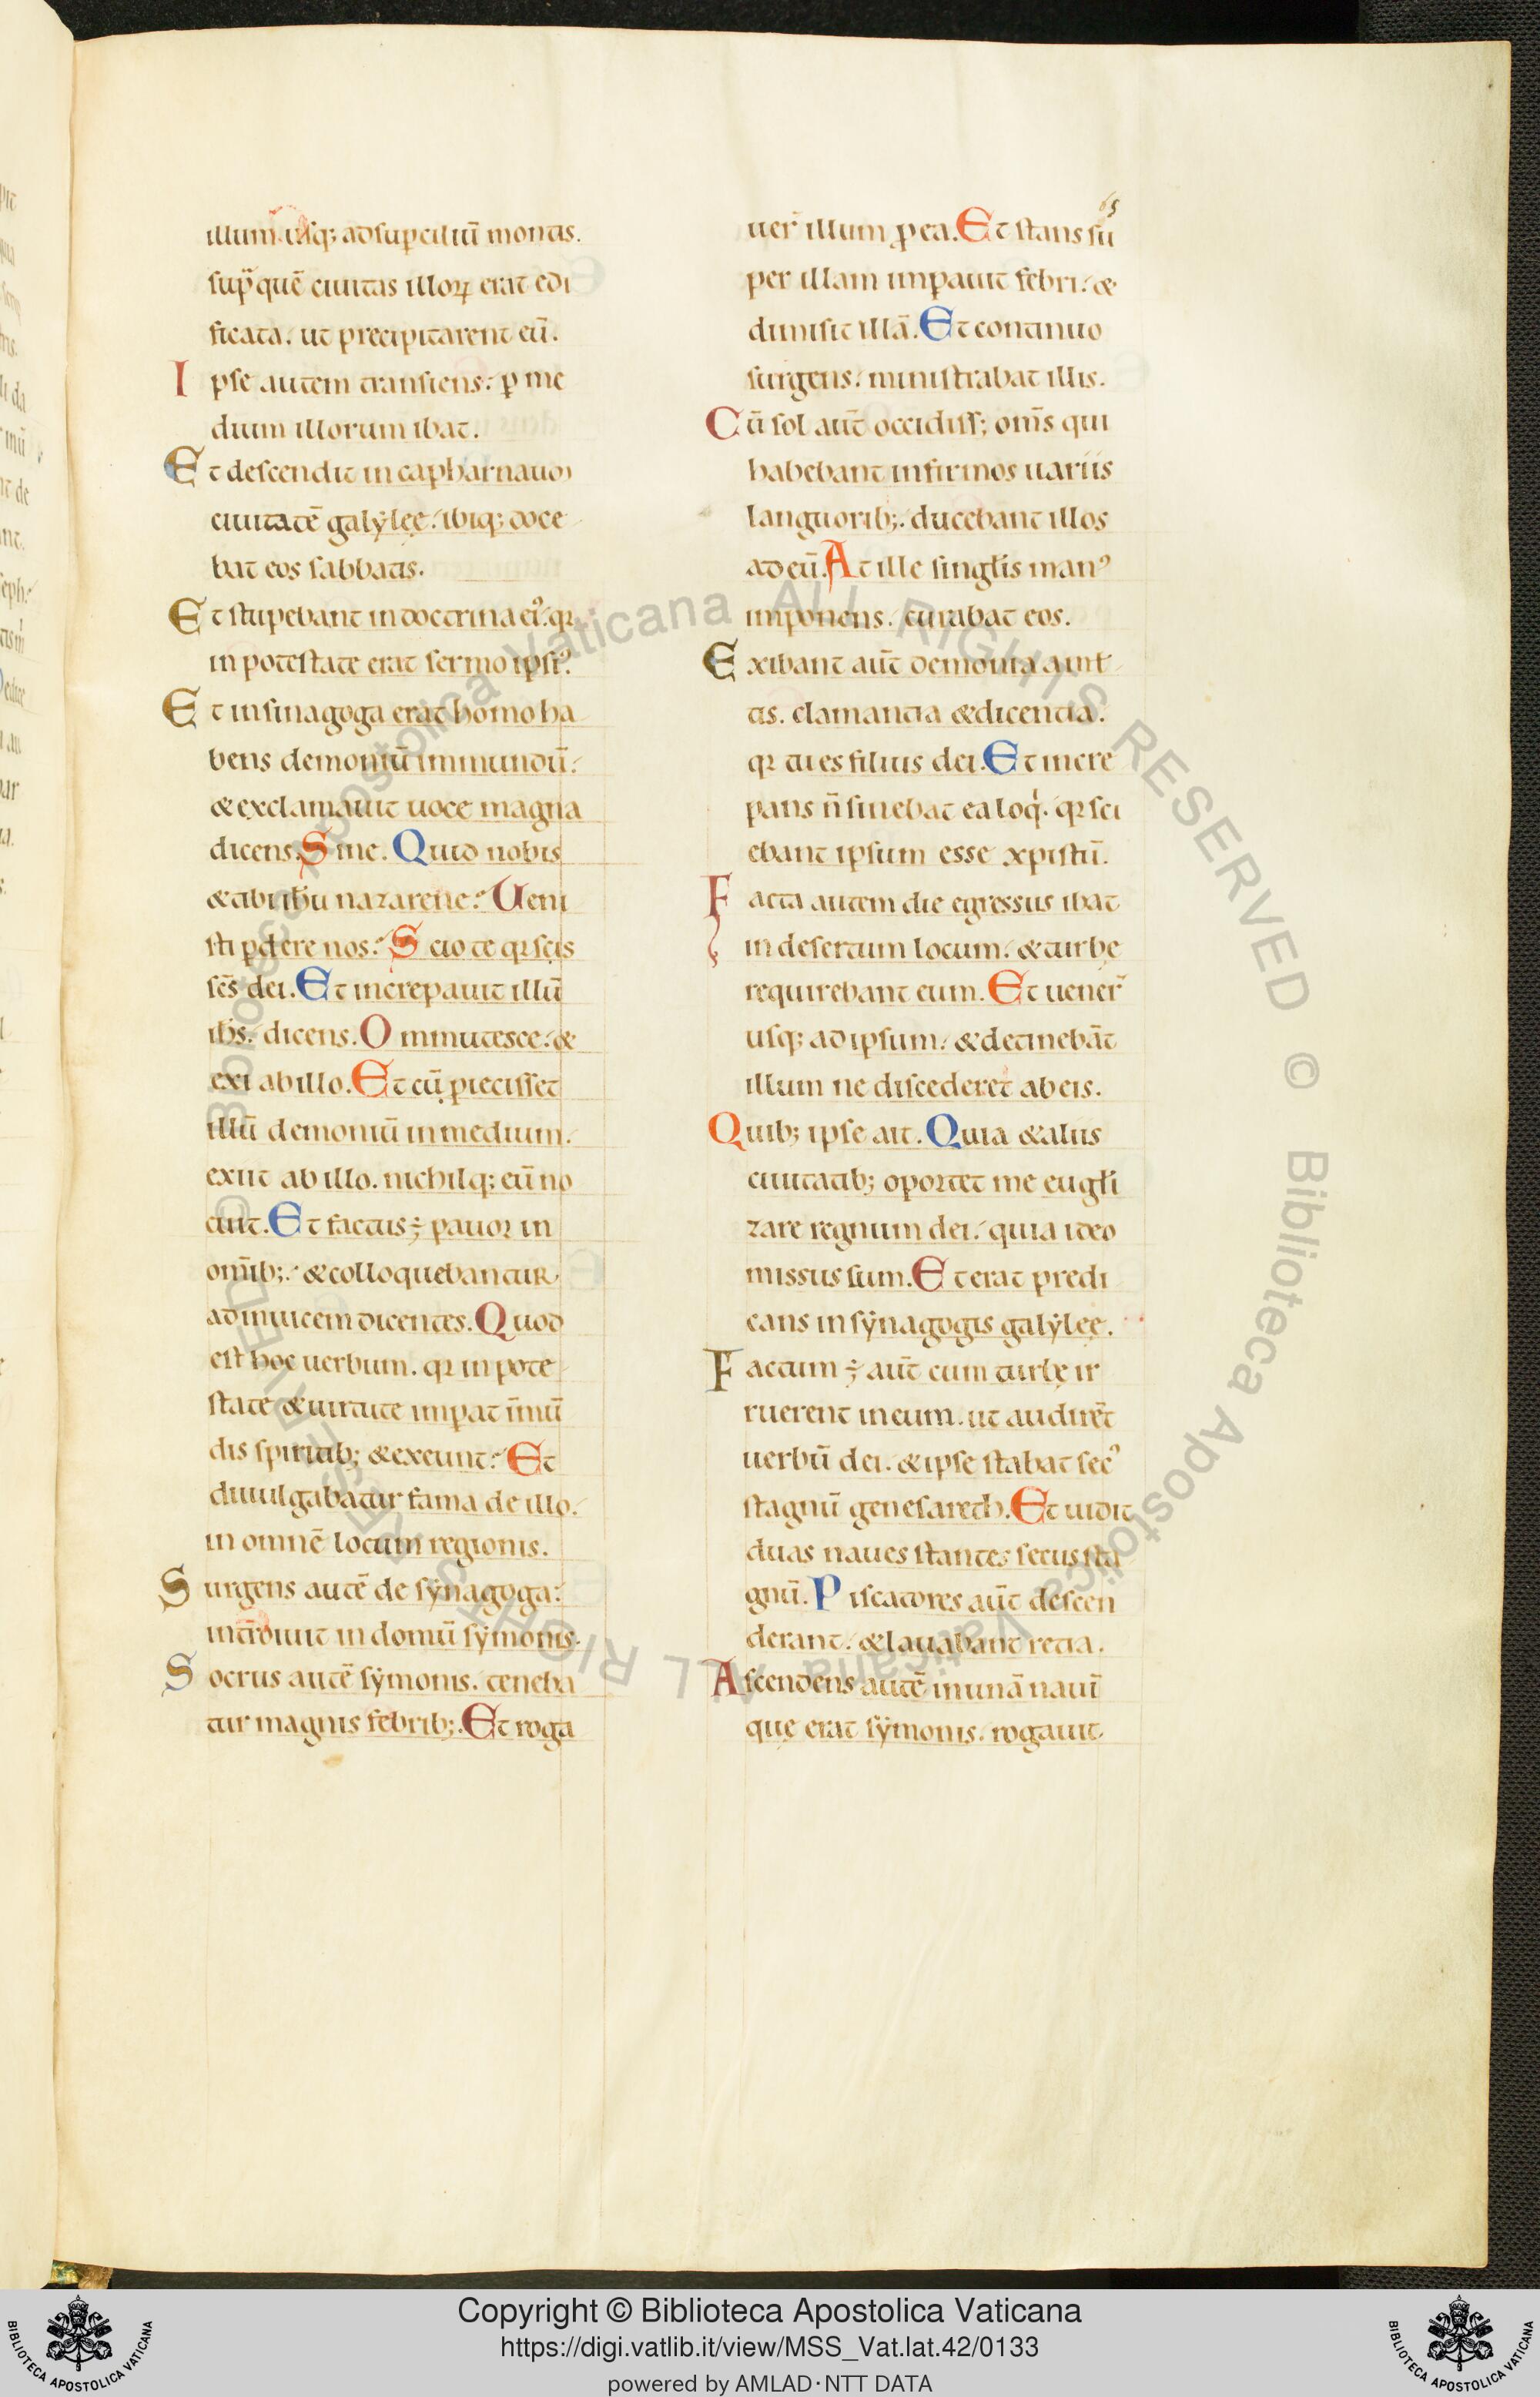 65
illum usq; ad supciliū montis.
sup̄ quē ciuitas illoꝝ erat edi
ficata. ut precipitarent eū.
Ipse autem transiens. ꝑ me
dium illorum ibat.
Et descendit in capharnauꝫ
ciuitatē galẏlęę. ibiq; doce
bat eos sabbatis.
Et stupebant in doctrina eiꝰ. qꝛ
in potestate erat sermo ipsiꝰ.
Et in sinagoga erat homo ha
bens demoniū immundū.
& exclamauit uoce magna
dicens. Sine. Quid nobis
& tibi ihu nazarene? Ueni
sti ꝑdere nos? Scio te qꝛ scis
scs̄ dei. Et increpauit illū
ihs̄. dicens. Ommutesce. &
exi ab illo. Et cū ꝓiecisset
illū demoniū in medium.
exiit ab illo. nichilq; eū no
cuit. Et factus ÷ pauor in
omīb;. & colloquebantur
ad inuicem dicentes. Quod
est hoc uerbum. qꝛ in pote
state & uirtute imꝑat īmū
dis spiritib; & exeunt? Et
diuulgabatur fama de illo.
in omnē locum regionis.
Surgens autē de sẏnagoga.
introiuit in domū sẏmonis.
Socrus autē sẏmonis. teneba
tur magnis febrib;. Et roga
uer̄ illum ꝓ ea. Et stans su
per illam imꝑauit febri. &
dimisit illā. Et continuo
surgens. ministrabat illis.
Cū sol aut̄ occidiss; om̄s qui
habebant infirmos uariis
languorib;. ducebant illos
ad eū. At ille singlis manꝰ
imponens. curabat eos.
Exibant aut̄ demonia a mlt
tis. clamantia & dicentia.
qꝛ tu es filius dei. Et incre
pans n̄ sinebat ea loqͥ. qꝛ sci
ebant ipsum esse xpistū.
Facta autem die egressus ibat
in desertum locum. & turbę
requirebant eum. Et uener̄
usq; ad ipsum. & detinebāt
illum ne discederet ab eis.
Quib; ipse ait. Quia & aliis
ciuitatib; oportet me eugli
zare regnum dei. quia ideo
missus sum. Et erat predi
cans in sẏnagogis galẏlęę.
Factum ÷ aut̄ cum turbę ir
ruerent in eum. ut audirēt
uerbū dei. & ipse stabat secꝰ
stagnū genesareth. Et uidit
duas naues stantes secus sta
gnū. Piscatores aut̄ descen
derant. & lauabant retia.
Ascendens autē in unā nauī
quę erat sẏmonis. rogauit
Copyright © Biblioteca Apostolica Vaticana
https://digi.vatlib.it/view/MSS_Vat.lat.42/0133
powered by AMLAD·NTT DATA
BIBLIOTECA APOSTOLICA VATICANA
BIBLIOTECA APOSTOLICA VATICANA
© Biblioteca Apostolica Vaticana ALL RIGHTS RESERVED © Biblioteca Apostolica Vaticana ALL RIGHTS RESERVED